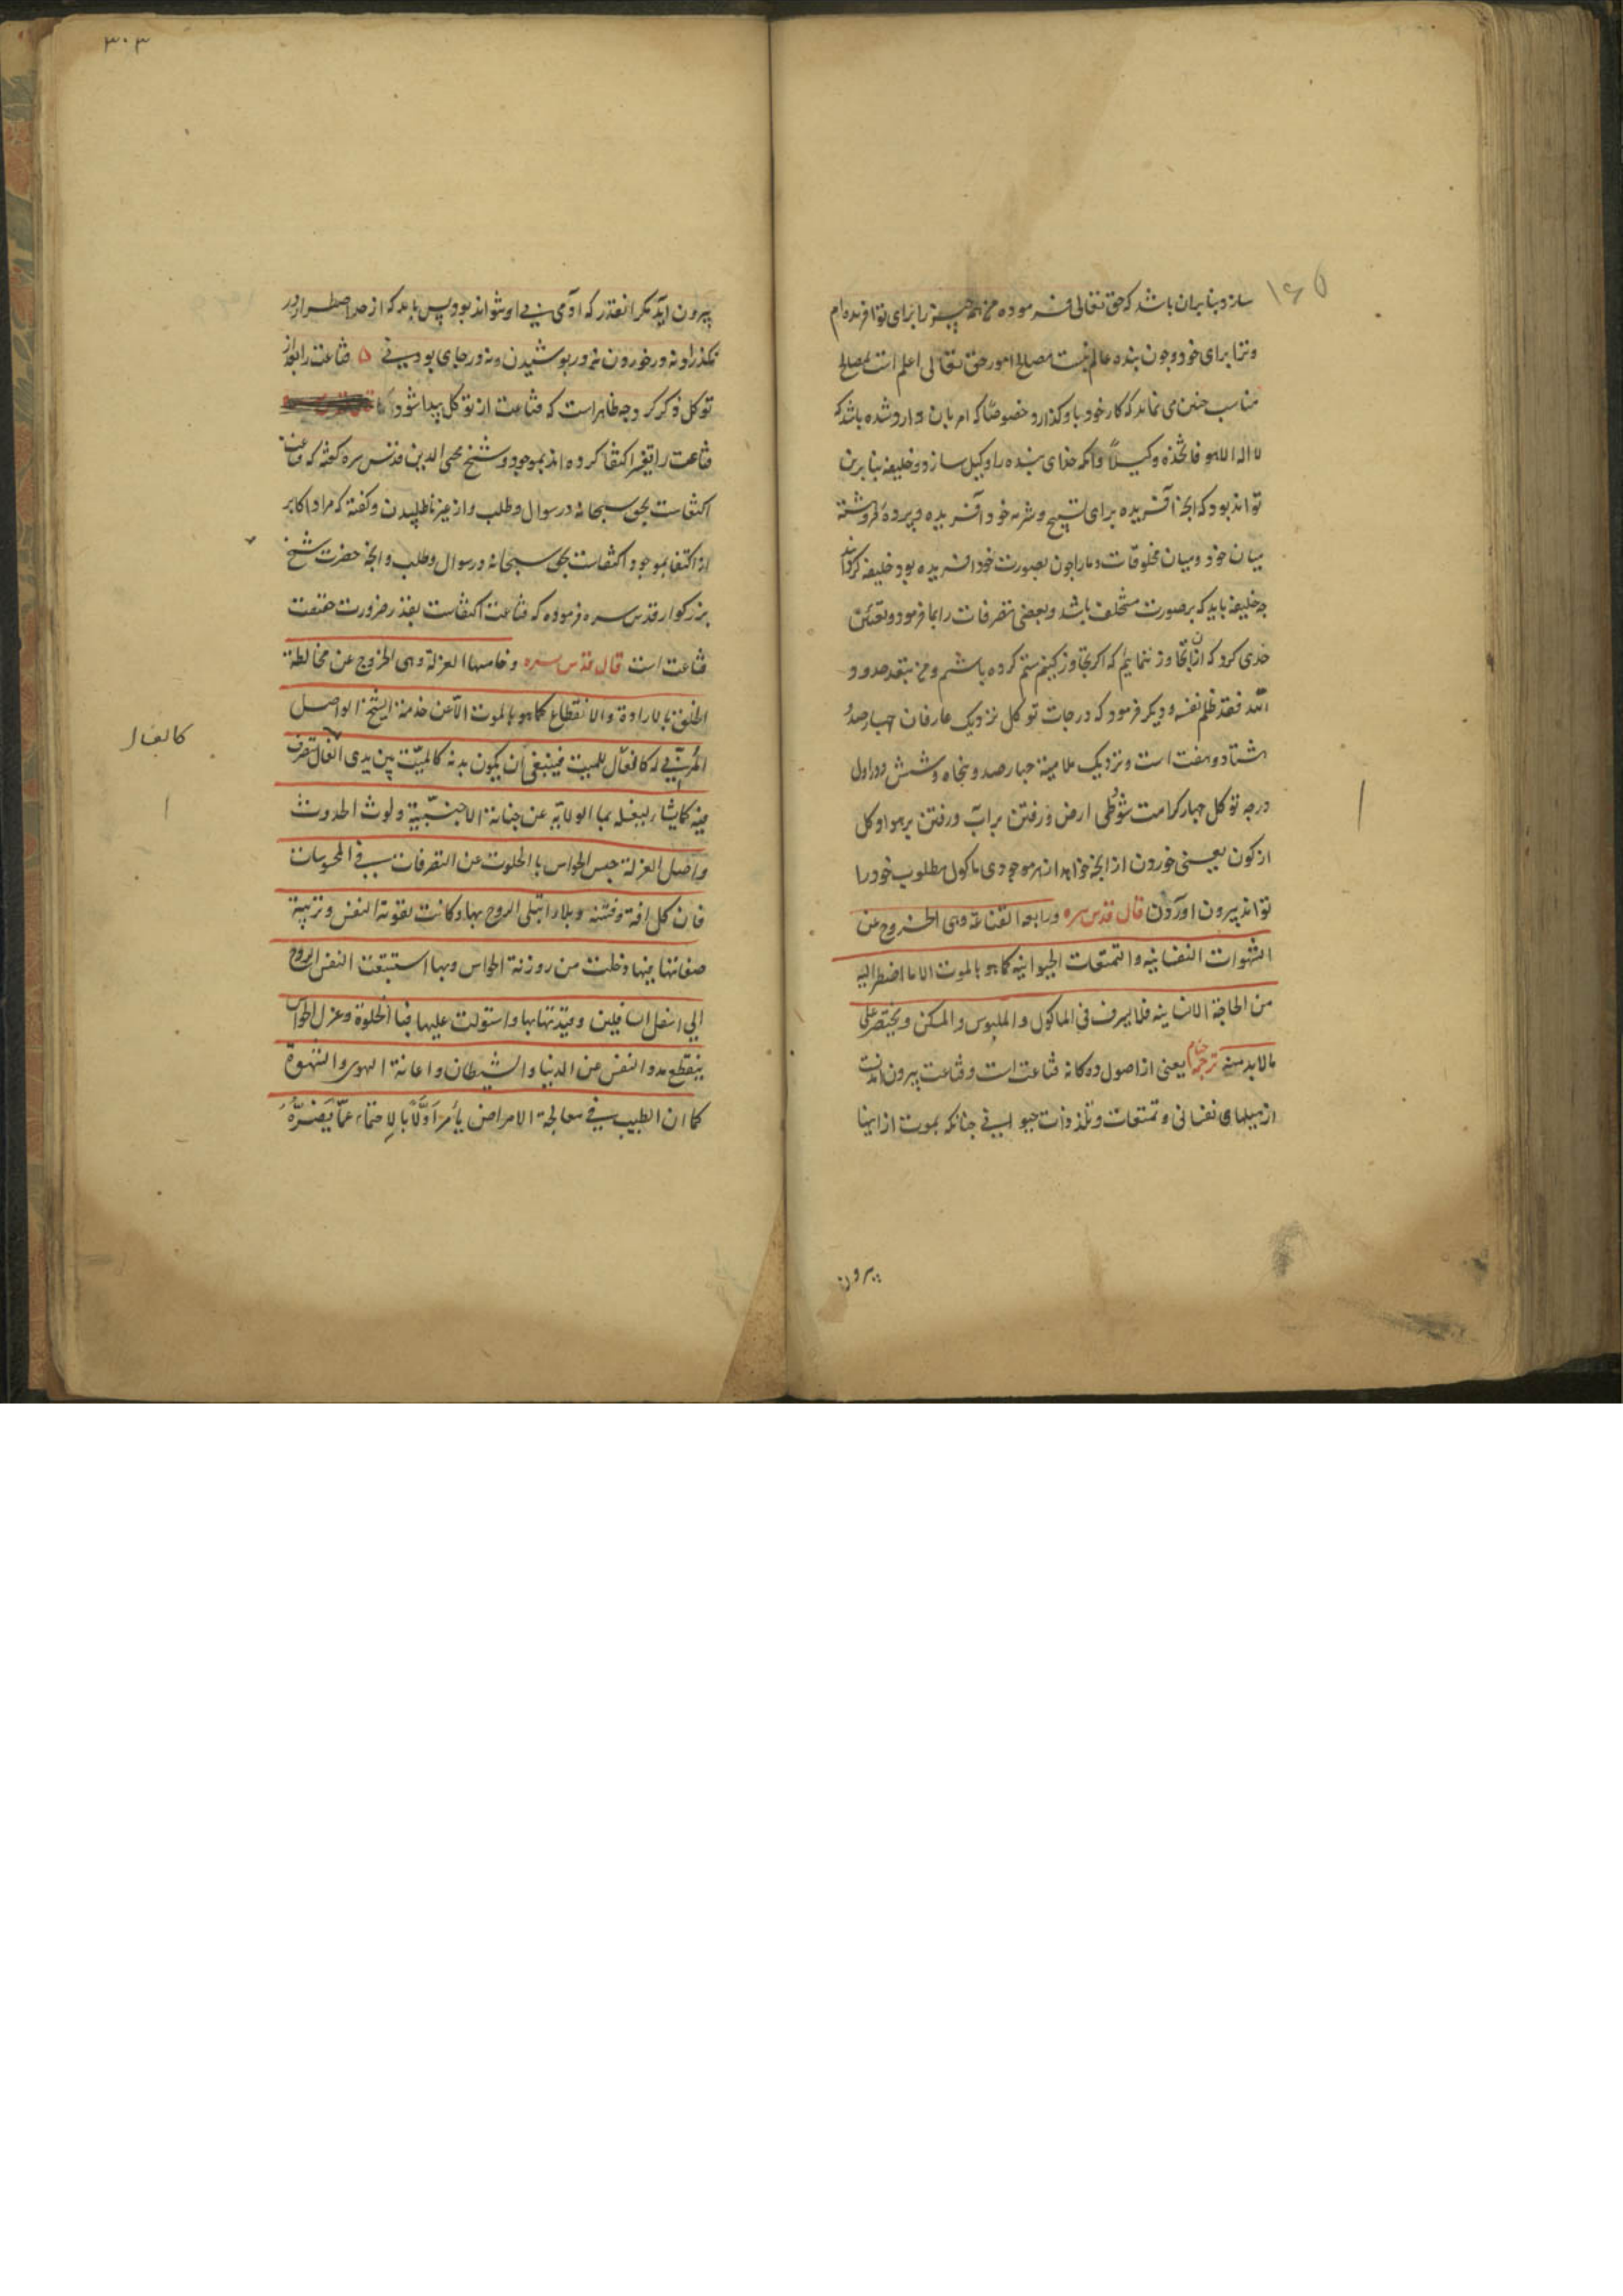 ۱۶۵
سازد بنابران باشد که حق تعالی فرموده همه چیز را برای تو آفریده‌ام
و ترا برای خود و چون بنده عالم نیست بمصالح امور حق تعالی اعلم است بمصالح
مناسب چنین می نماید که کار خود باو گذارد و خصوصًا که امر بان وارد شده باشد که
لا اله الا هو فاتخذه وکیلًا وآنکه خدای بنده را وکیل سازد و خلیفه بنا برین
تواند بود که آنچه آفریده برای تسبیح و خود آفریده و پرده فروهشته
میان خود و میان مخلوقات و ما را چون بصورت خود آفریده بود خلیفه گردانید
چه خلیفه باید که بر صورت مستخلف باشد و بعضی تصرفات را بما فرمود و تعیین
حدی کرد که ازان تجاوز ننمایم که اگر تجاوز کنیم ستم کرده باشیم ومن یتعد حدود
الله فقد ظلم نفسه و دیگر فرمود که درجات توکل نزدیک عارفان چهارصد و
هشتاد و هفت است و نزدیک ملامیه چهارصد و پنجاه و شش و در اول
درجه توکل چهار کرامت شود طی ارض و رفتن بر آب و رفتن بر هوا و کل
از کون یعنی خوردن از آنچه خواهد از هر موجودی ماکول مطلوب خود را
تواند بیرون آوردن قال قدس سره ورابعها القناعة وهی الخروج عن
الشهوات النفسانیه والتمتعات الحیوانیه کما هو بالموت الا ما اضطر الیه
من الحاجة الانسانیه فلا یسرف فی الماکول والملبوس والمسکن ویختصر علی
مالابد منه ترجمه چهارم یعنی از اصول ده کانه قناعت است و قناعت بیرون آمدنست
از میلهای نفسانی و تمتعات و تلذذات حیوانی چنانکه بموت ازینها
بیرون
۳۰۳
بیرون آید مگر آنقدر که آدمی بی او نتواند بود پس باید که از حد اضطرار در
نگذراند نه در خوردن نه در پوشیدن و نه در جای بودنی ۵ قناعت را بعد از
توکل ذکر کرد وجه ظاهر است که قناعت از توکل پیدا شود
قناعت را بغیر اکتفا کرده اند بموجود و شیخ محیی الدین قدس سره گفته که قناعت
اکتفاست بحق سبحانه در سوال و طلب و از غیر ناطلبیدن و گفته که مراد اکابر
از اکتفا بموجود اکتفاست بحق سبحانه در سوال و طلب و آنچه حضرت شیخ
بزرگوار قدس سره فرموده که قناعت اکتفاست بقدر ضرورت حقیقت
قناعت است قال قدس سره وخامسها العزلة وهی الخروج عن مخالطة
الخلق بالارادة والانقطاع کما هو بالموت الا عن خدمة الشیخ الواصل
المربی له کالغسّال للمیت فینبغی ان یکون بدنه کالمیت بین یدی الغسال یتصرف
فیه کما یشاء لیغسله بماء الولایة عن جنابة الاجنبیّة ولوث الحدوث
واصل العزلة حبس الحواس بالخلوت عن التصرفات فی المحسوسات
فان کل آفة وفتنة وبلاء ابتلی الروح بها وکانت تقویة النفس وتربیة
صفاتها فیها دخلت من روزنة الحواس وبها استتبعت النفس الروح
الی اسفل السافلین وقیدتها بها واستولت علیها فبالخلوة وعزل الحواس
ینقطع مدد النفس عن الدنیا والشیطان واعانة الهوی والشهوة
کما ان الطبیب فی معالجة الامراض یأمر اَوّلًا بالاحتماء عمّا یَضُرُّهُ
کالغسال